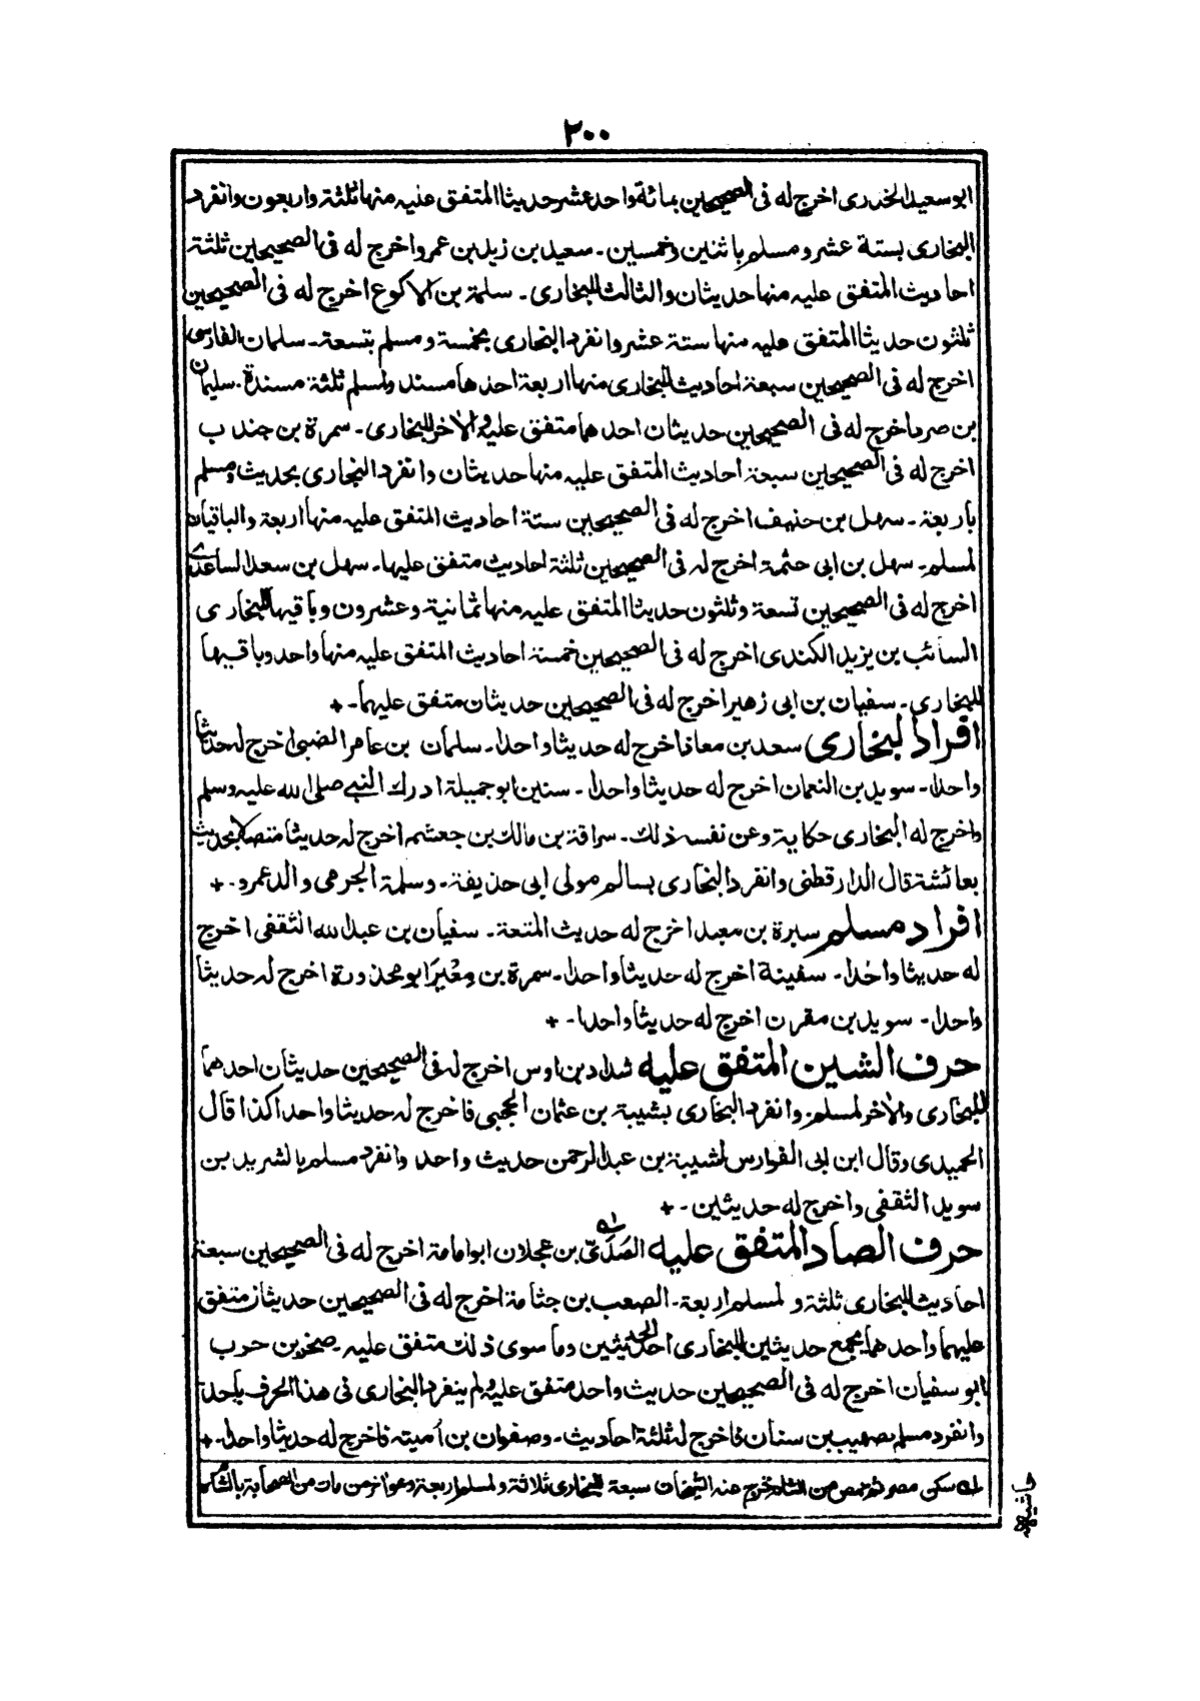 ٢٠٠
ابو سعيد الخدرى اخرج له فى الصحيحين بمائة واحد عشر حديثا المتفق عليه منها ثلثة واربعون وانفرد
البخارى بستة عشر ومسلم باثنين وخمسين۔ سعيد بن زيد بن عمرو اخرج له فى الصحيحين ثلثة
احاديث المتفق عليه منها حديثان والثالث للبخارى۔ سلمة بن الاكوع اخرج له فى الصحيحين
ثلثون حديثا المتفق عليه منها ستة عشر وانفرد البخارى بخمسة ومسلم بتسعة۔ سلمان الفارسى
اخرج له فى الصحيحين سبعة احاديث للبخارى منها اربعة احدها مسند ولمسلم ثلثة مسندة۔ سليمان
بن صرد اخرج له فى الصحيحين حديثان احدهما متفق عليه والآخر للبخارى۔ سمرة بن جندب
اخرج له فى الصحيحين سبعة احاديث المتفق عليه منها حديثان وانفرد البخارى بحديث ومسلم
باربعة۔ سهل بن حنيف اخرج له فى الصحيحين ستة احاديث المتفق عليه منها اربعة والباقيان
لمسلم۔ سهل بن ابى حثمة اخرج له فى الصحيحين ثلثة احاديث متفق عليها۔ سهل بن سعد الساعدے
اخرج له فى الصحيحين تسعة وثلثون حديثا المتفق عليه منها ثمانية وعشرون وباقيها للبخارى
السائب بن يزيد الكندى اخرج له فى الصحيحين خمسة احاديث المتفق عليه منها واحد وباقيها
للبخارى۔ سفيان بن ابى زهير اخرج له فى الصحيحين حديثان متفق عليهما۔+
افراد البخارى سعد بن معاذ اخرج له حديثا واحدا۔ سلمان بن عامر الضبى اخرج له حديثا
واحدا۔ سويد بن النعمان اخرج له حديثا واحدا۔ سنين ابو جميلة ادرك النبى صلى الله عليه وسلم
واخرج له البخارى حكاية وعن نفسه ذلك۔ سراقة بن مالك بن جعشم اخرج له حديثا متصلا بحديث
بعائشة قال الدارقطنى وانفرد البخارى بسالم مولى ابى حذيفة۔ وسلمة الجرمى والد عمرو۔+
افراد مسلم سبرة بن معبد اخرج له حديث المتعة۔ سفيان بن عبد الله الثقفى اخرج
له حديثا واحدا۔ سفينة اخرج له حديثا واحدا۔ سمرة بن مِعْيَر ابو محذورة اخرج له حديثا
واحدا۔ سويد بن مقرن اخرج له حديثا واحدا۔+
حرف الشين المتفق عليه شداد بن اوس اخرج له فى الصحيحين حديثان احدهما
للبخارى والآخر لمسلم وانفرد البخارى بشيبة بن عثمان الحجبى فاخرج له حديثا واحدا كذا قال
الحميدى وقال ابن ابى الفوارس لشيبة بن عبد الرحمن حديث واحد وانفرد مسلم بالشريد بن
سويد الثقفى واخرج له حديثين۔+
حرف الصاد المتفق عليه الصُدَىّ بن عجلان ابو امامة اخرج له فى الصحيحين سبعة
احاديث للبخارى ثلثة ولمسلم اربعة۔ الصعب بن جثامة اخرج له فى الصحيحين حديثان متفق
عليهما واحدهما يجمع حديثين للبخارى احد الحديثين وما سوى ذلك متفق عليه۔ صخر بن حرب
ابو سفيان اخرج له فى الصحيحين حديث واحد متفق عليه ولم ينفرد البخارى فى هذا الحرف باحد
وانفرد مسلم بصهيب بن سنان فاخرج له ثلثة احاديث۔ وصفوان بن أمية فاخرج له حديثا واحدا۔+
له سكن مصر ثم حمص من الشام خرج عنه الشيخان سبعة للبخارى ثلاثة ولمسلم اربعة وهو آخر من مات من الصحابة بالشام
حاشيه